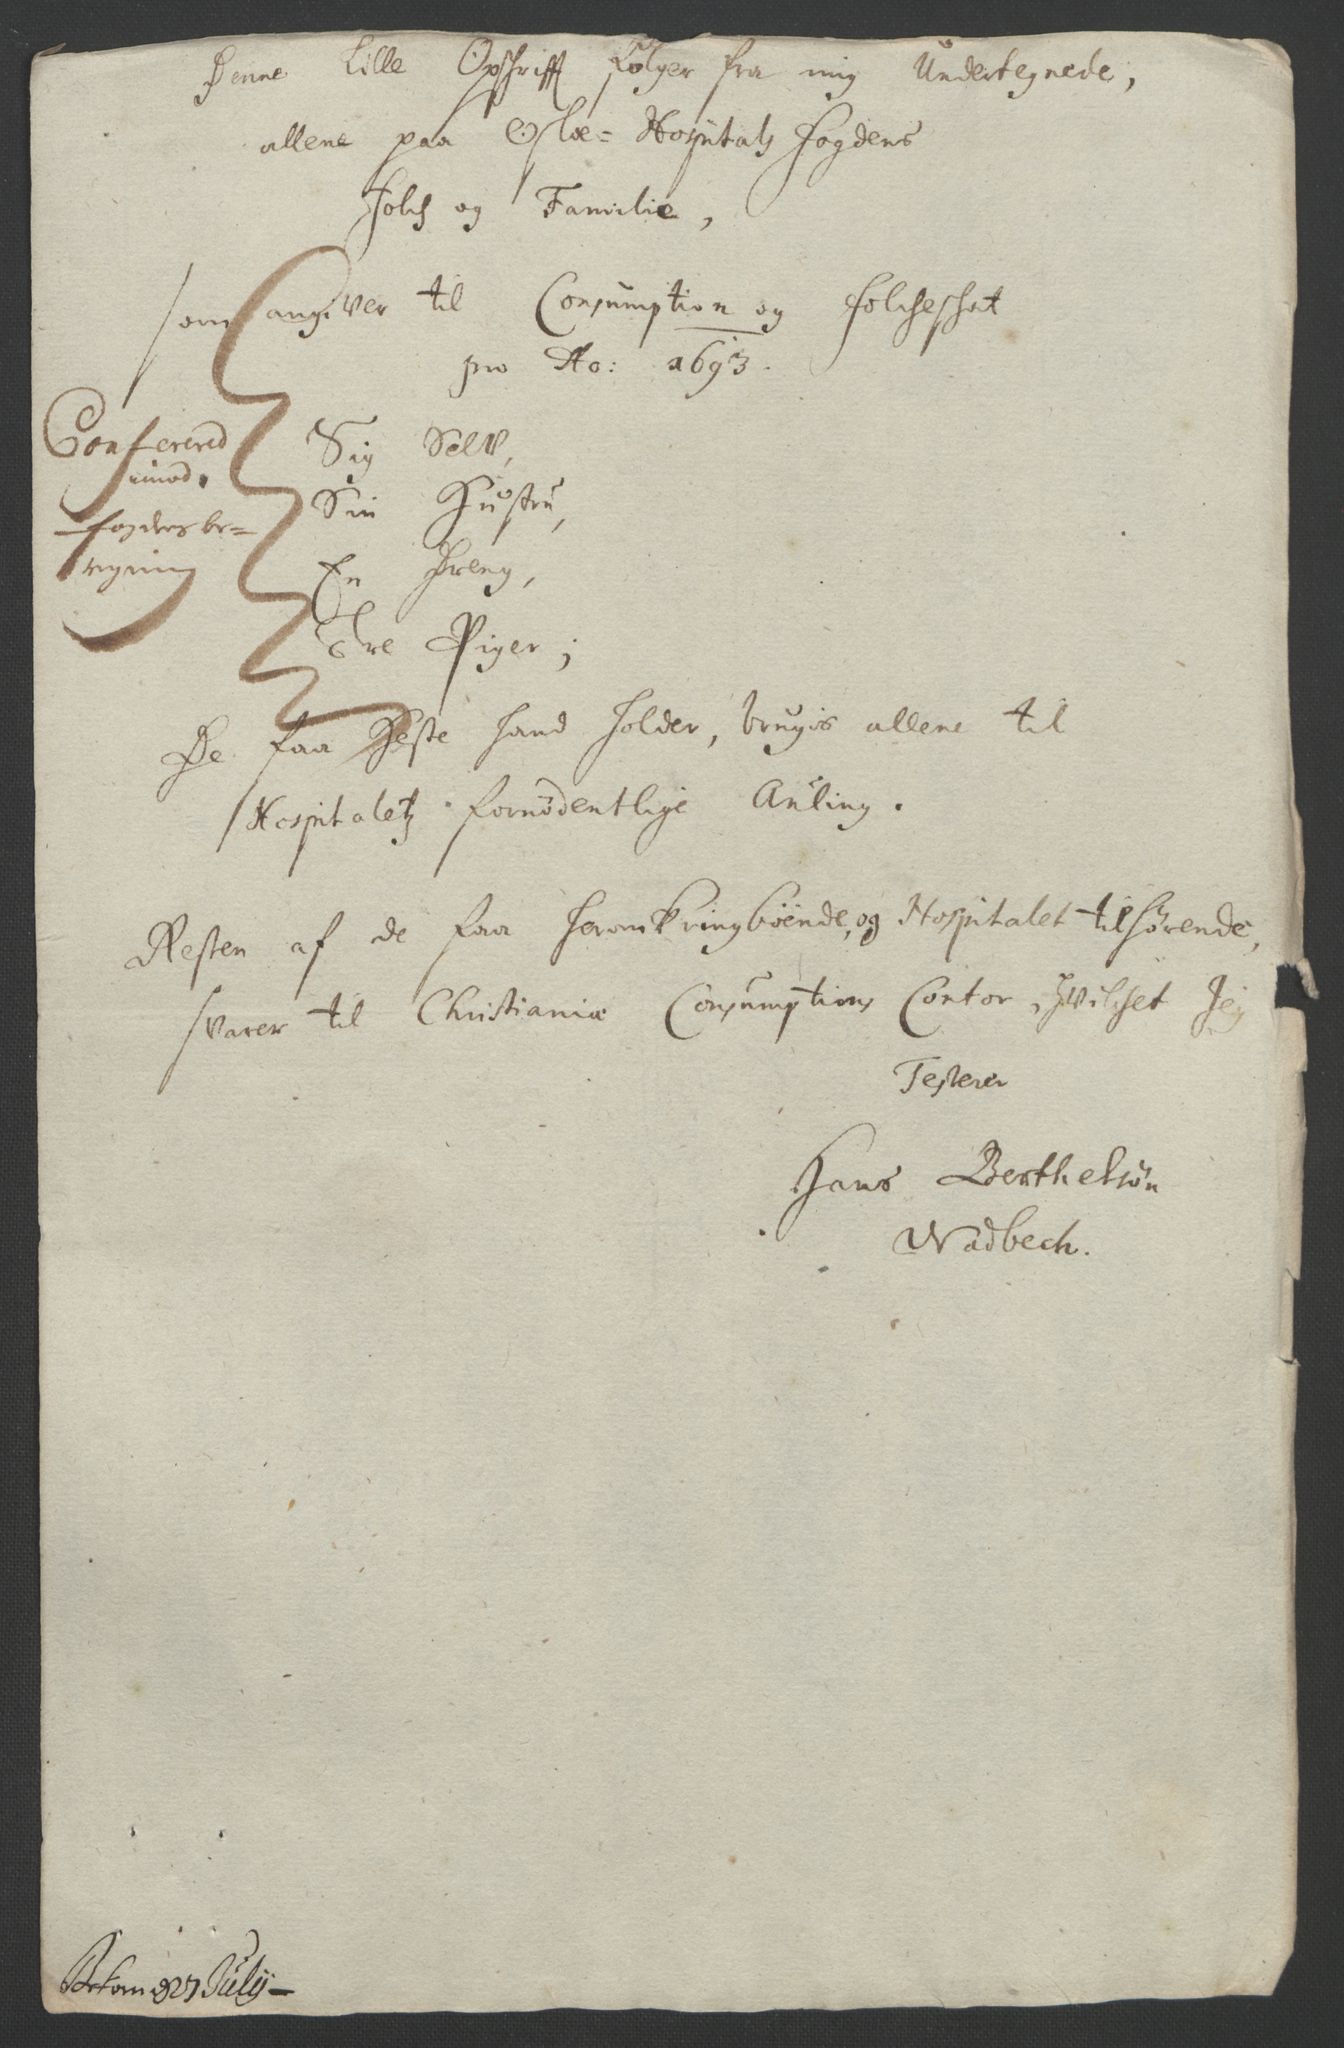 Denne Lille Opschrifft følger fra mig Undertegnede,
allene paa Osloe- Hospitals Fogdens
folch og Familie,
som angiver til Consumption og folcheschat
pro Ao: 1693.
Conferered
imod
fogdens be-
regning
Sig Selv,
Sin Hustru,
En Dreng,
Tre Piger;
De faa Heste hand holder, brugis allene til
Hospitaletz fornødentlige Auling.
Resten af de faa heromkringboende, og Hospitalet tilhørende,
svarer til Christianiæ Consumptions Contor, Hvilchet Jeg
Testerer
Hans Berthelsøn
Wadbech.
Bekom d 27 July